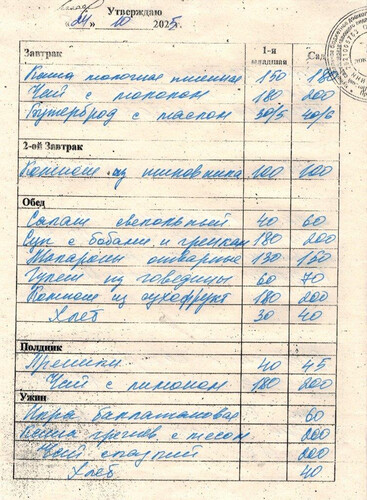 Утверждаю
«24» 10 2025г.
Завтрак 1-я младшая Сад
Каша молочная пшенная 150 180
Чай с молоком 180 200
Бутерброд с маслом 30/5 40/6
2-ой Завтрак
Компот из шиповника 100 100
Обед
Салат свекольный 40 60
Суп с бобами и гренкам 180 200
Макароны отварные 130 150
Гуляш из говядины 60 70
Компот из сухофрукт 180 200
Хлеб 30 40
Полдник
Пряники 40 45
Чай с лимоном 180 200
Ужин
Икра баклажановая 60
Каша гречнев. с мясом 200
Чай сладкий 200
Хлеб 40